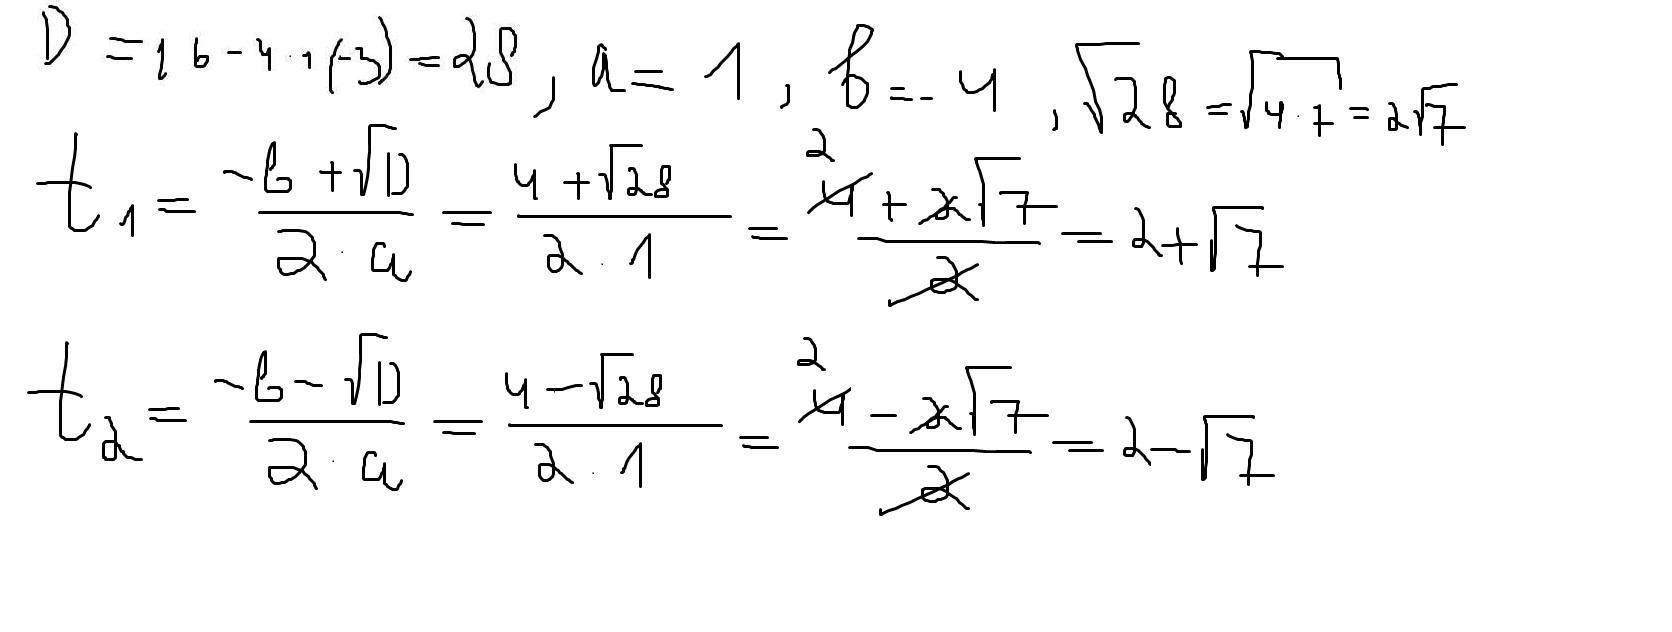 D = 16 - 4 · 1 (-3) = 28, a = 1, b = - 4, √28 = √4·7 = 2√7
t₁ = (-b + √D)/(2 · a) = (4 + √28)/(2 · 1) = 2 (4 + 2√7)/2 = 2 + √7
t₂ = (-b - √D)/(2 · a) = (4 - √28)/(2 · 1) = 2 (4 - 2√7)/2 = 2 - √7